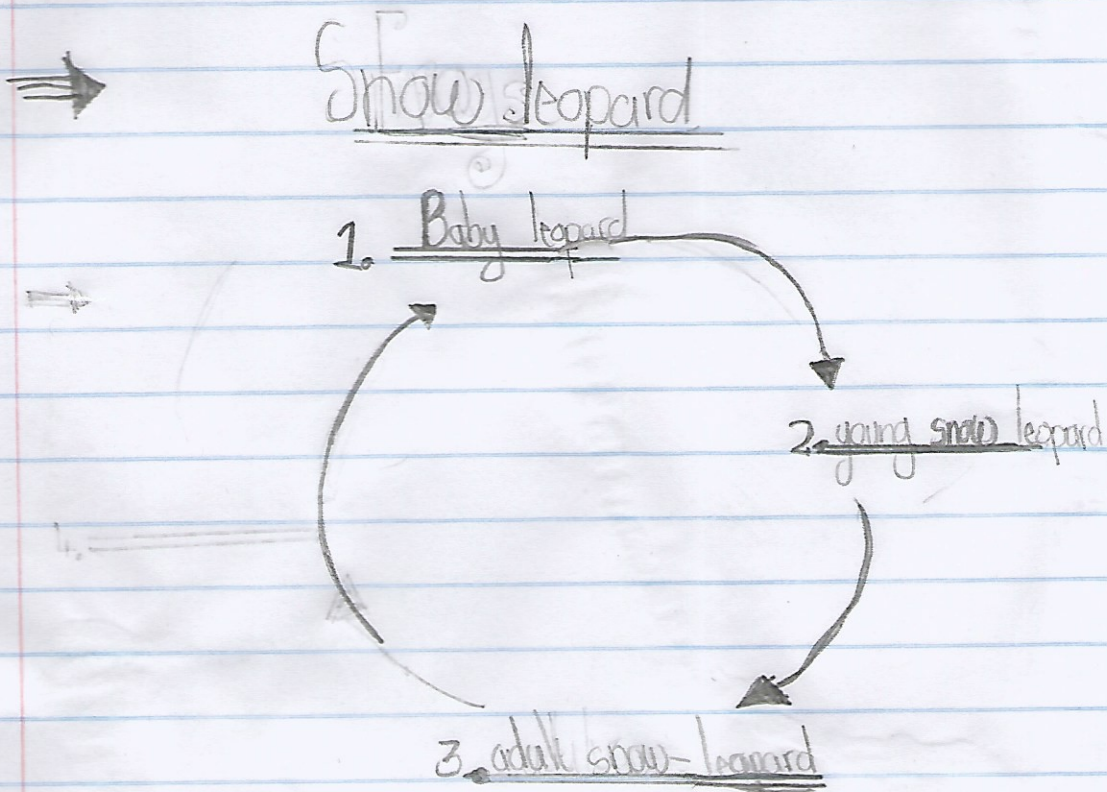 Snow leopard
1. Baby leopard
2. young snow leopard
3. adult snow-leopard
4.